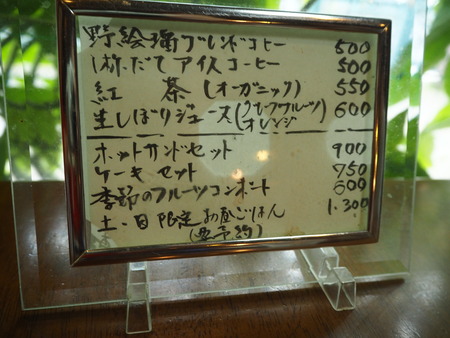 野絵瑠ブレンドコーヒー 500
水だしアイスコーヒー 500
紅茶(オーガニック) 550
生しぼりジュース(グレープフルーツ 600
オレンジ
ホットサンドセット 900
ケーキセット 750
季節のフルーツコンポート 600
土・日限定お昼ごはん 1.300
(要予約)